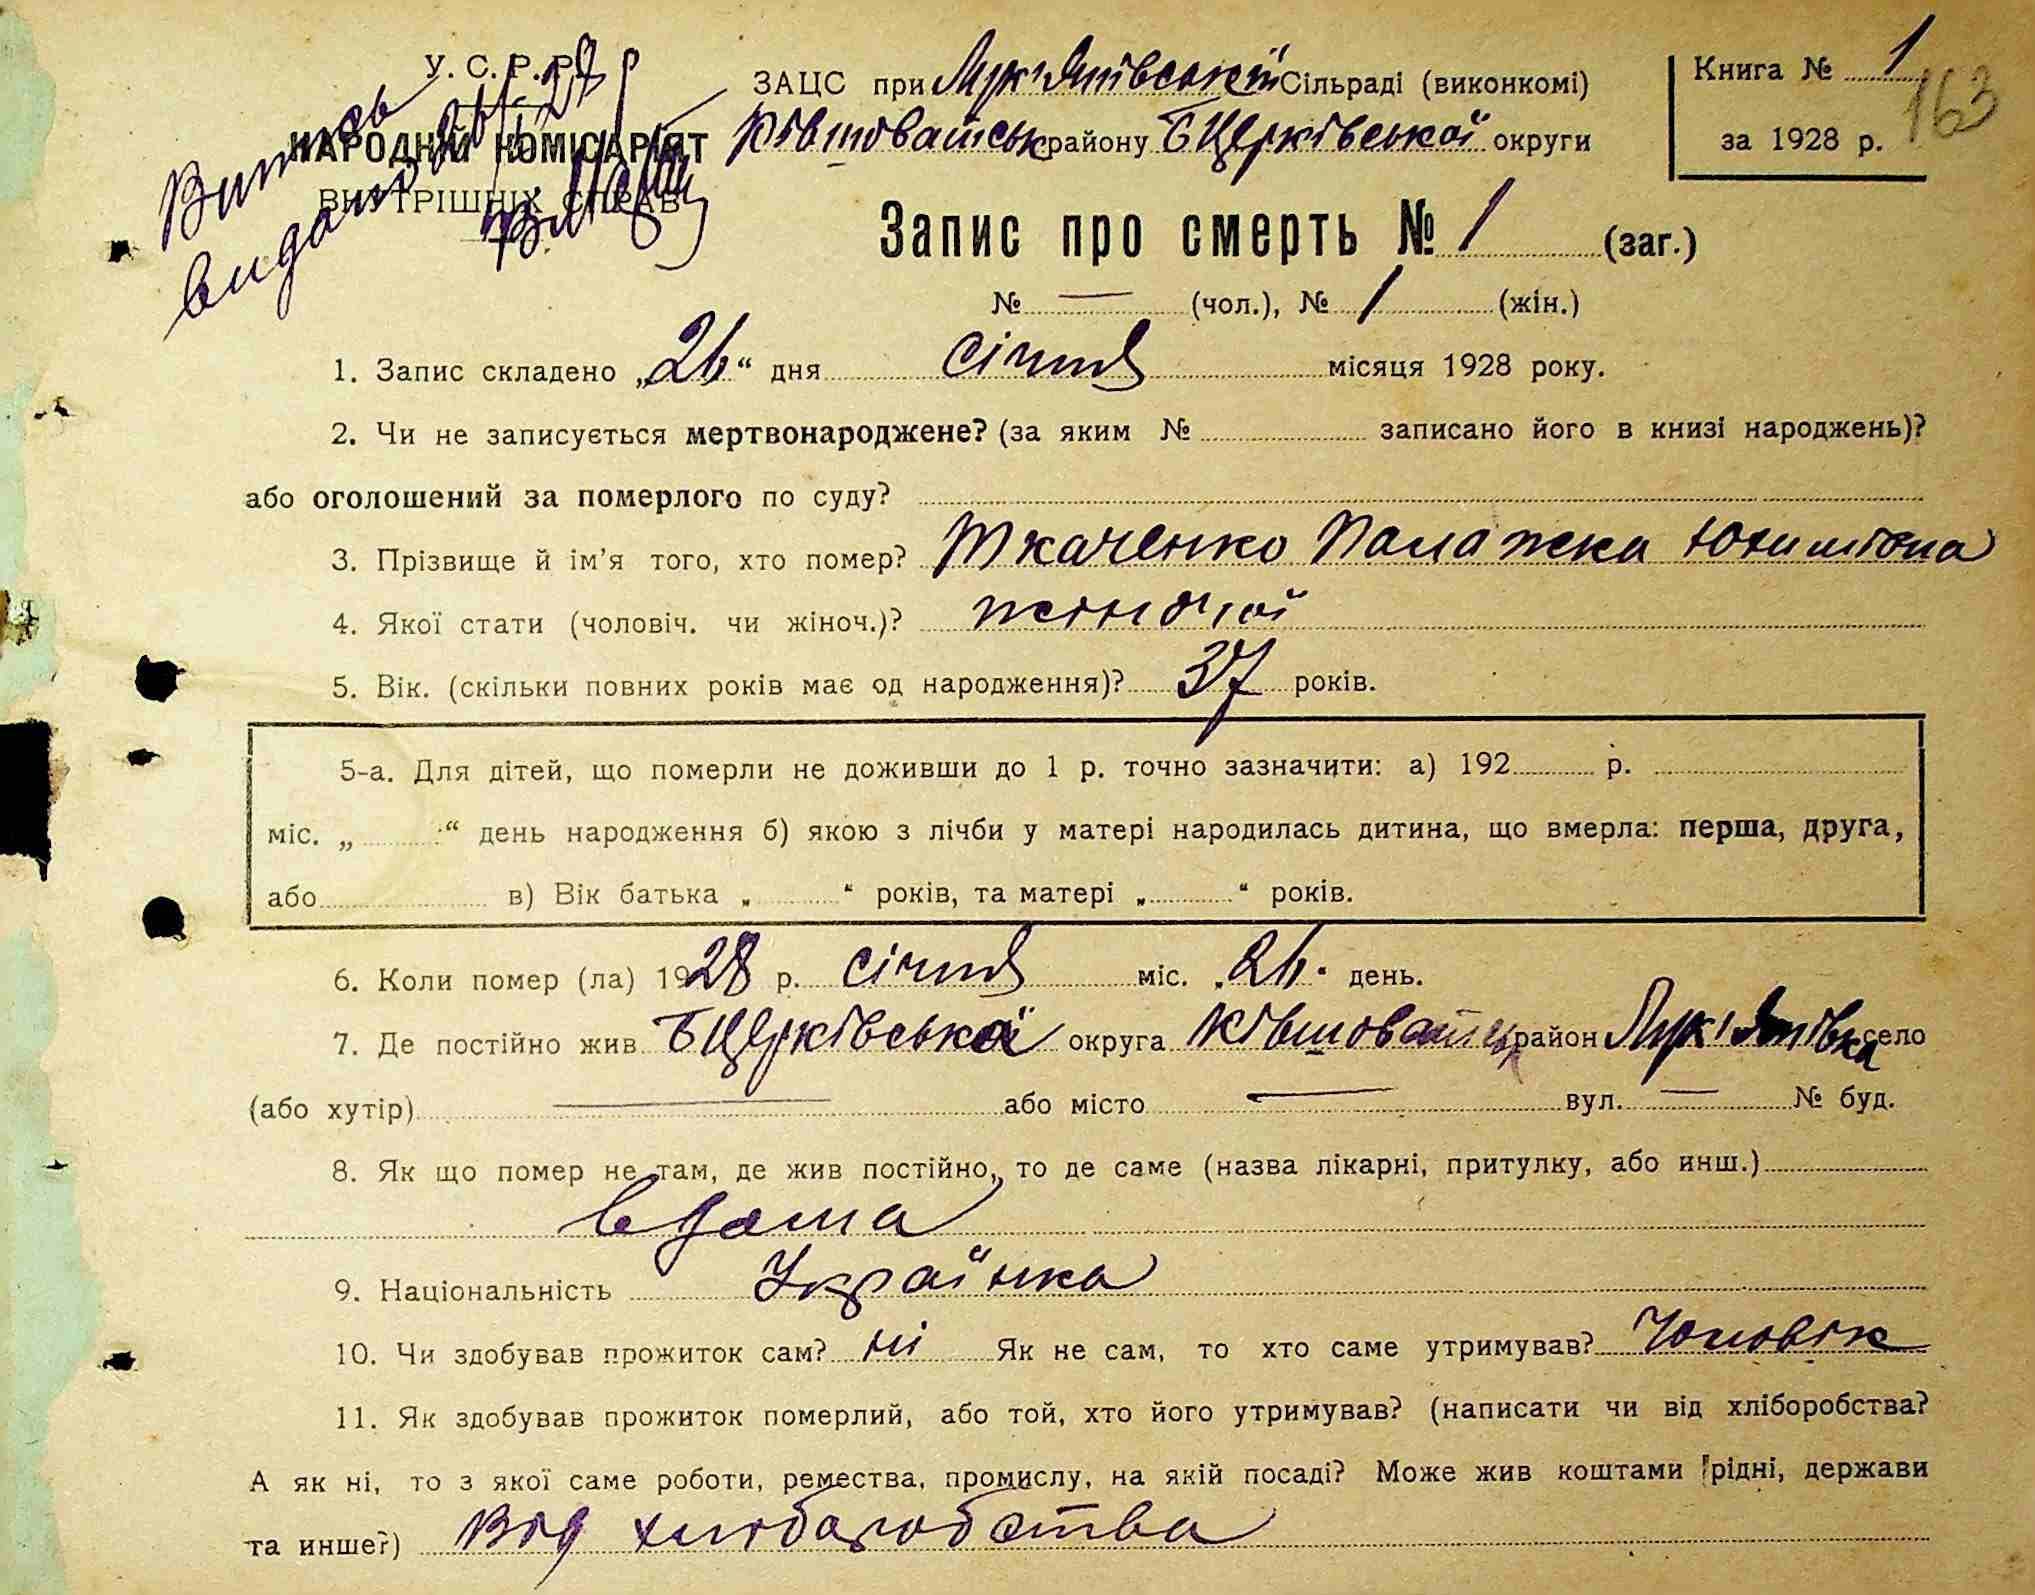 У. С. Р. Р.
НАРОДНИЙ КОМІСАРІЯТ
ВНУТРІШНІХ СПРАВ
Витяг
видано
ЗАЦС при Лук'янівській Сільраді (виконкомі)
Ківшоватськ району БЦерківської округи
Книга № 1
163
за 1928 р.
Запис про смерть № 1 (заг.)
№ — (чол.), № 1 (жін.)
1. Запис складено „26“ дня січня місяця 1928 року.
2. Чи не записується мертвонароджене? (за яким № записано його в книзі народжень)?
або оголошений за померлого по суду?
3. Прізвище й ім'я того, хто помер? Ткаченко Палажка Юхимівна
4. Якої стати (чоловіч. чи жіноч.)? жіночої
5. Вік. (скільки повних років має од народження)? 37 років.
5-а. Для дітей, що померли не доживши до 1 р. точно зазначити: а) 192 р.
міс. „ “ день народження б) якою з лічби у матері народилась дитина, що вмерла: перша, друга,
або в) Вік батька „ “ років, та матері „ “ років.
6. Коли помер (ла) 1928 р. січня міс. „26“ день.
7. Де постійно жив БЦерківської округа Ківшоватськ район Лук'янівка село
(або хутір) — або місто — вул. — № буд.
8. Як що помер не там, де жив постійно, то де саме (назва лікарні, притулку, або инш.)
вдома
9. Національність Українка
10. Чи здобував прожиток сам? ні Як не сам, то хто саме утримував? Чоловік
11. Як здобував прожиток померлий, або той, хто його утримував? (написати чи від хліборобства?
А як ні, то з якої саме роботи, ремества, промислу, на якій посаді? Може жив коштами рідні, держави
та инше?) Від хліборобства